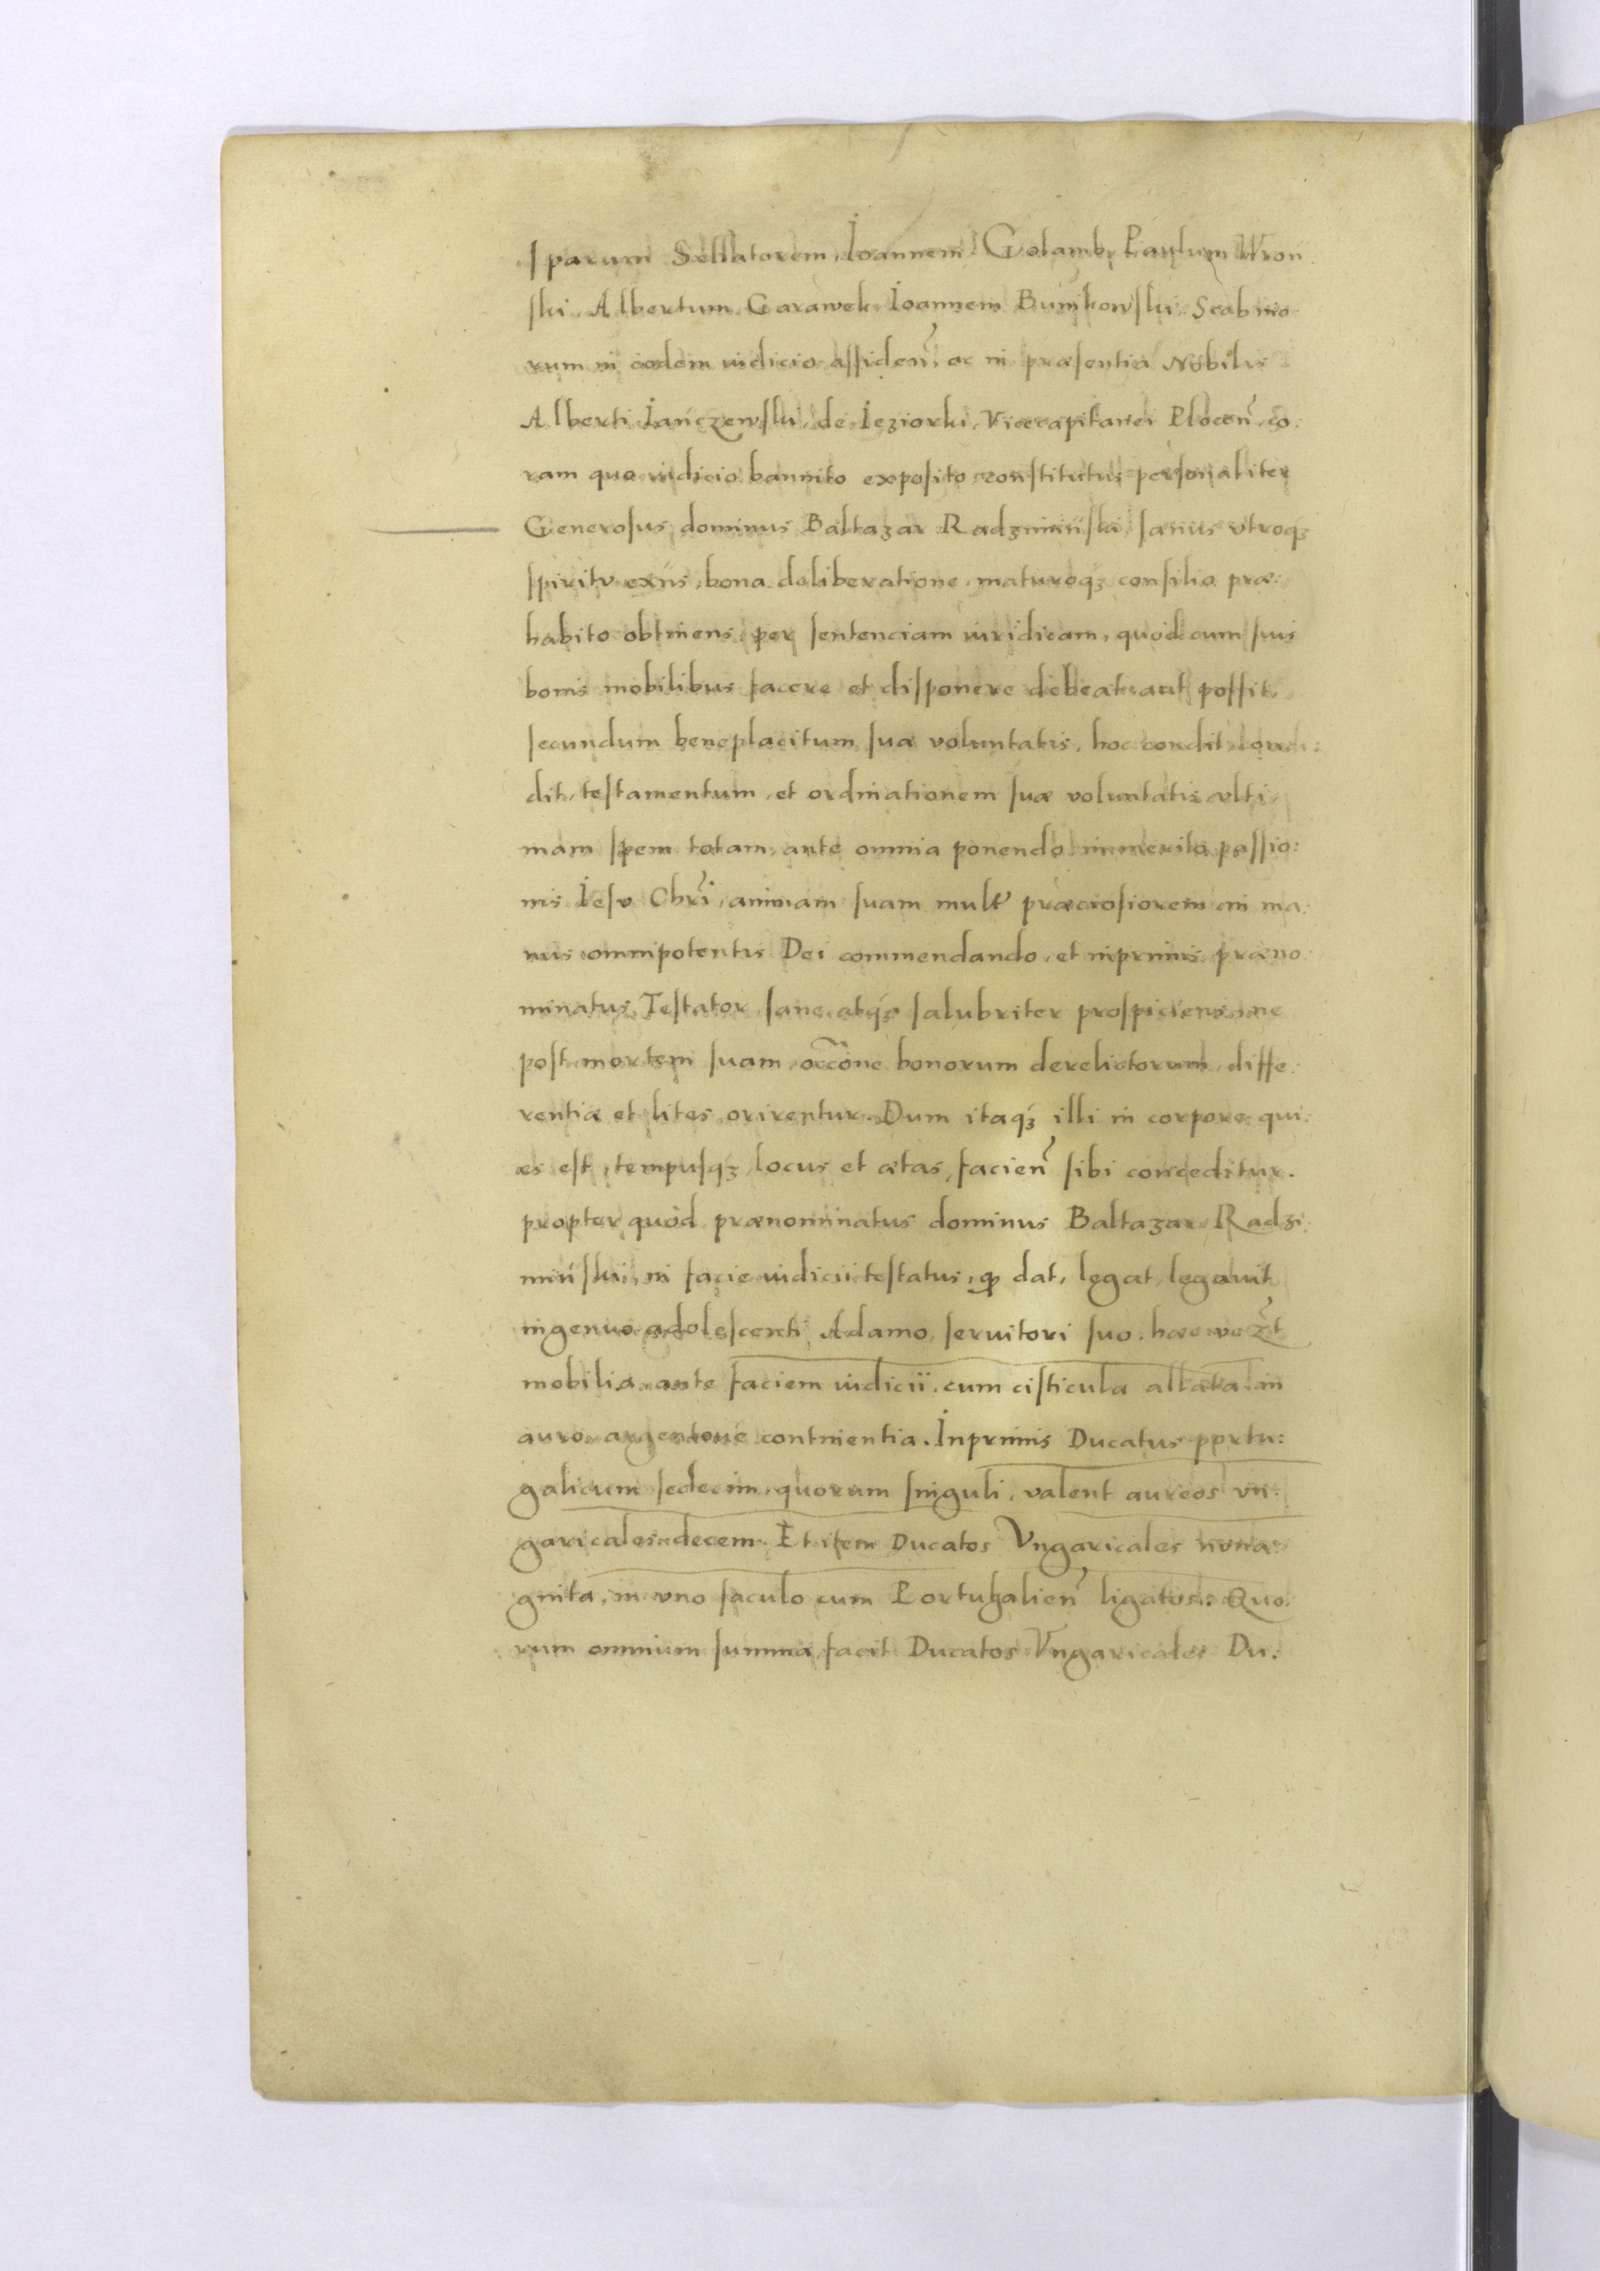 sparum Sellatorem, Ioannem Golamb, Paulum Wron
ski, Albertum Garawek, Ioannem Bumkowski, Scabino
rum in eodem iudicio assiden̄, ac in præsentia Nobilis
Alberti Iańczewski, de Ieziorki, Vicecapitanei Plocen̄, co:
ram quo iudicio bannito exposito, constitutus personaliter
Generosus dominus Baltazar Radziminski, sanus vtroqꝫ
spiritv exiis, bona deliberatione, maturoqꝫ consilio præ:
habito obtinens, per sentenciam iuridicam, quod cum suis
bonis mobilibus facere et disponere debeat aut possit,
secundum beneplacitum suæ voluntatis, hoc condit, condi:
dit, testamentum, et ordinationem suæ voluntatis vlti:
mam spem totam, ante omnia ponendo in merito passio:
nis Iesv Chrī, animam suam mult præciosiorem in ma:
nus omnipotentis Dei commendando, et inprimis præno:
minatus Testator sane atqꝫ salubriter prospiciens, ne
post mortem suam, occōne bonorum derelictorum, diffe:
rentiæ et lites orirentur. Dum itaqꝫ illi in corpore qui:
es est, tempusqꝫ, locus et ætas, facien̄ sibi conceditur.
propter quod prænominatus dominus Baltazar Radzi:
minski, in facie iudicii testatus, qꝫ dat, legat, legauit
ingenuo adolescenti Adamo seruitori suo, hæc
mobilia, ante faciem iudicii, cum cisticula allata, in
auro, argentoue continentia. Inprimis Ducatus portu:
galicum sedecim, quorum singuli, valent aureos vn:
garicales decem. Et item Ducatos Vngaricales nona:
ginta, in vno saculo cum Portugalien̄ ligatos. Quo:
rum omnium summa facit Ducatos Vngaricales Du: